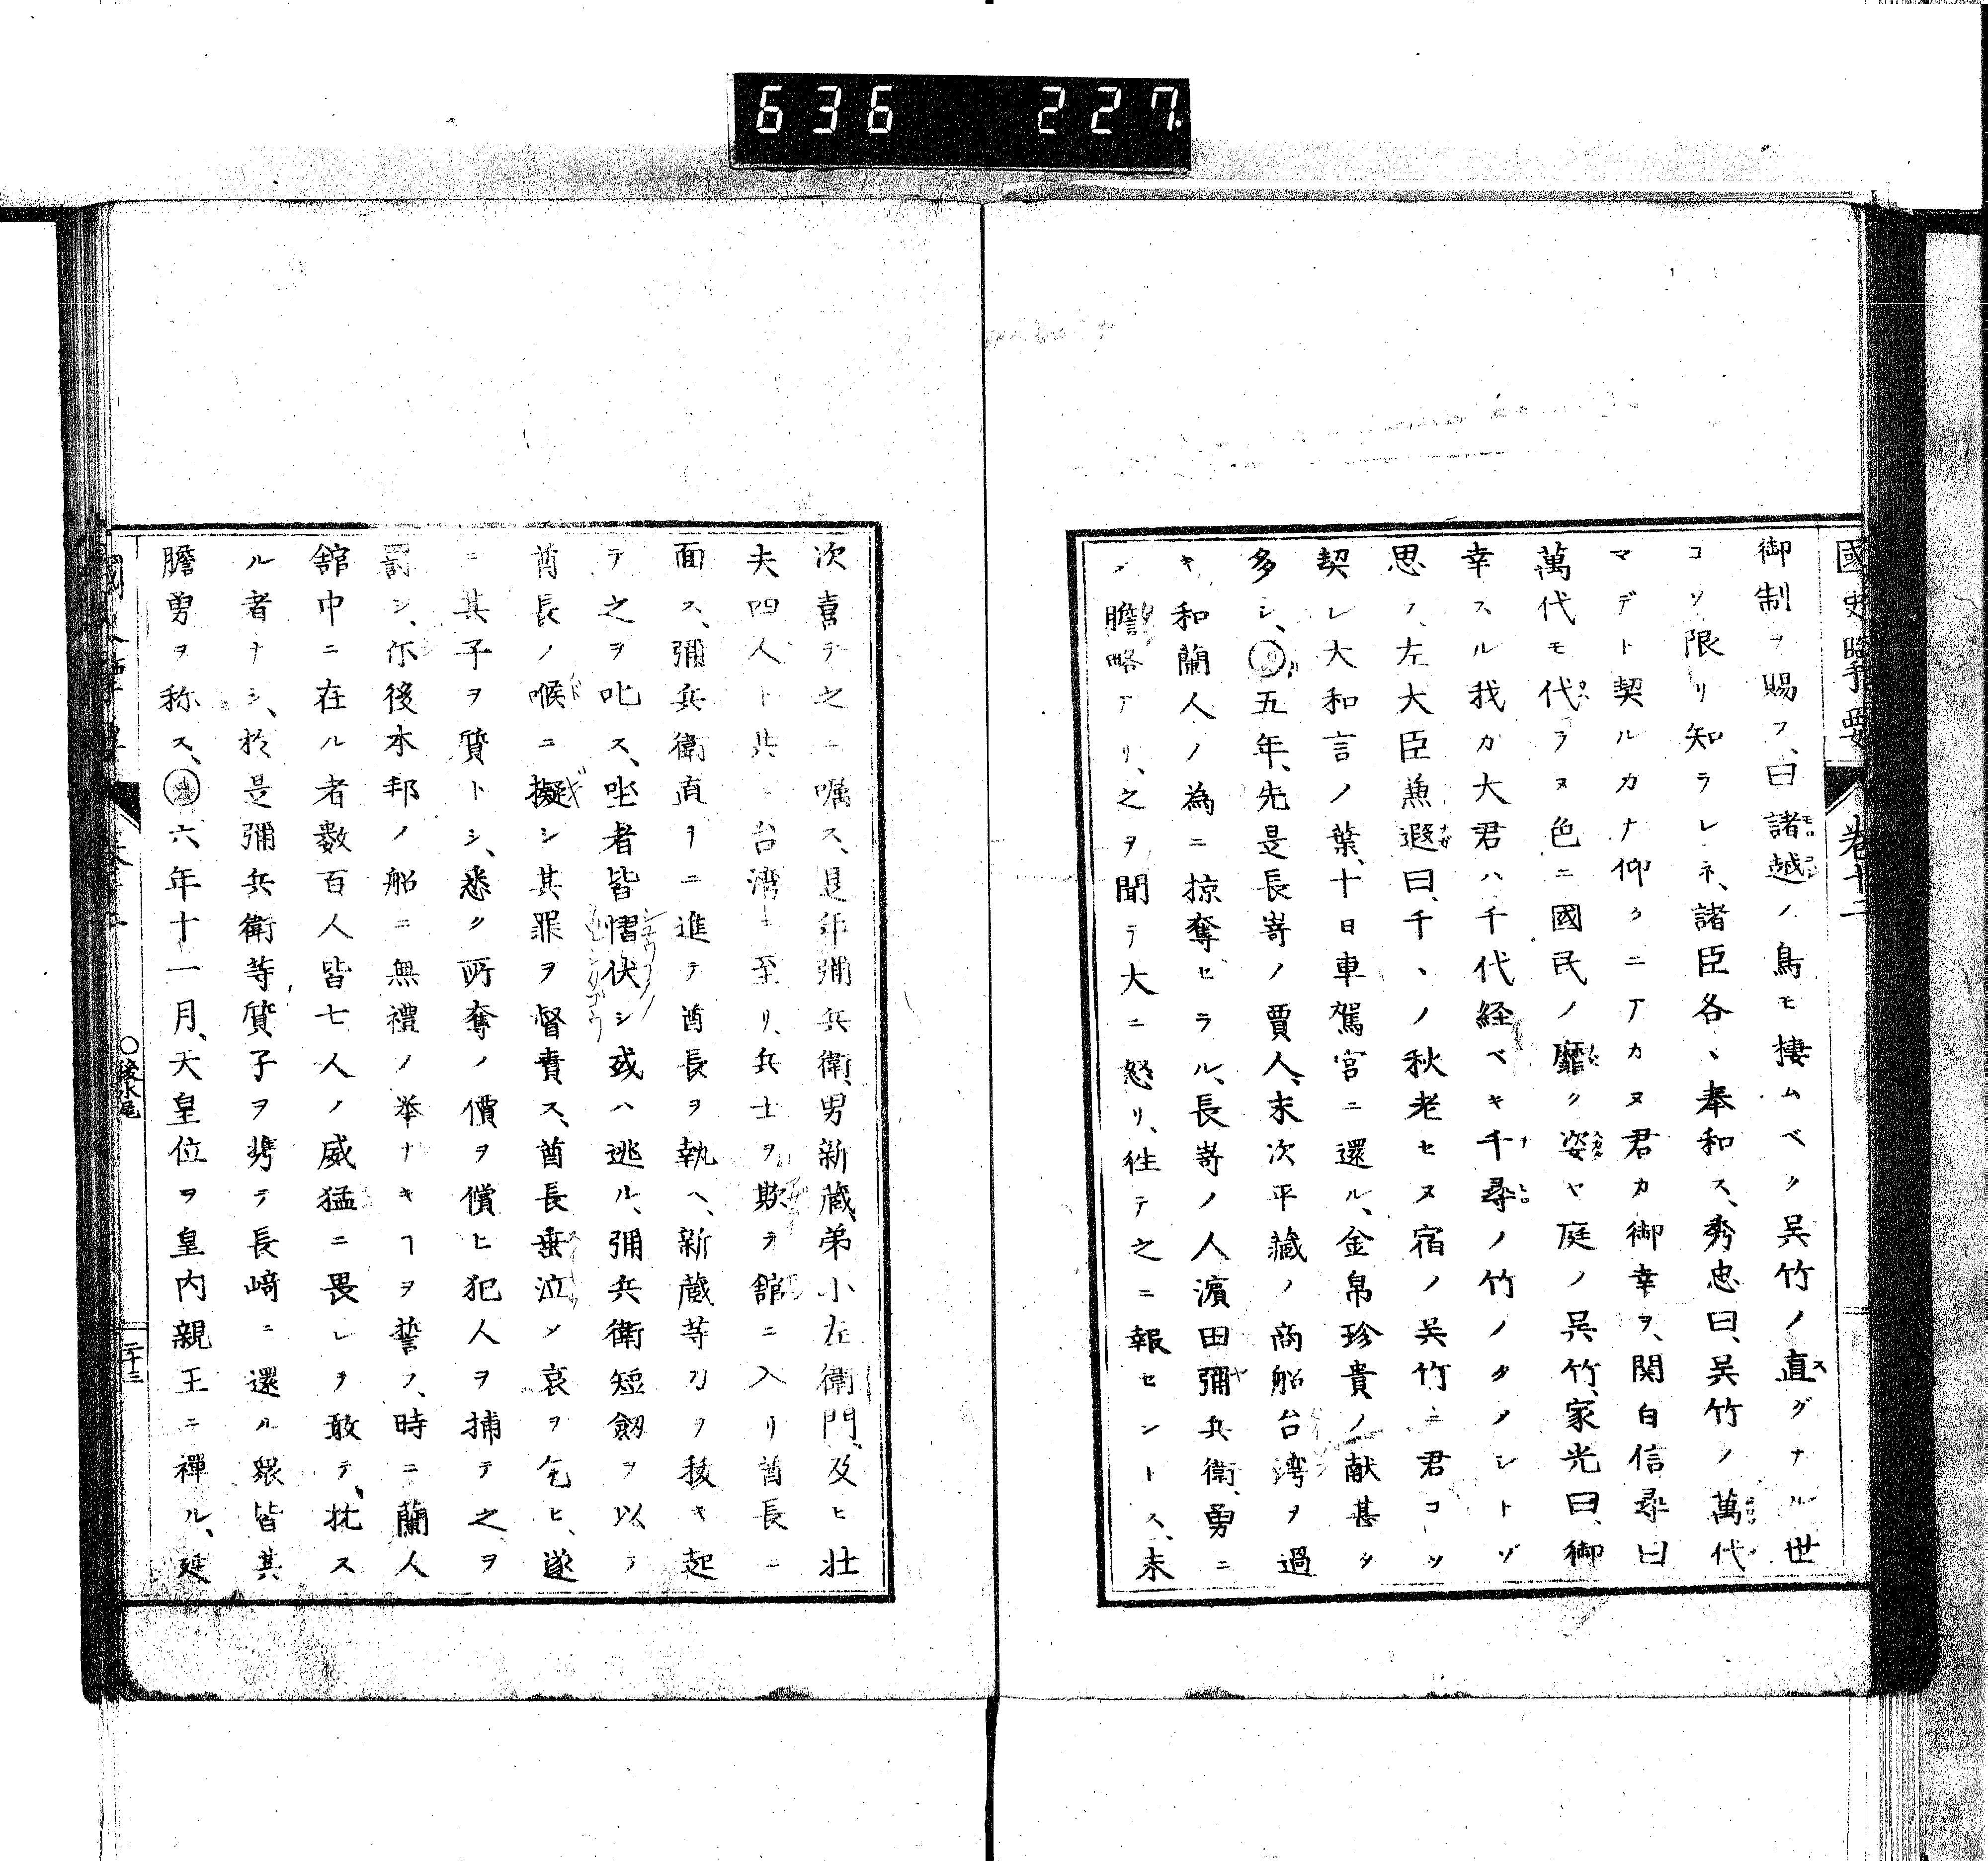 636 227.
國史擥要 卷十二
御制ヲ賜フ、曰諸越ノ鳥モ棲ムベク呉竹ノ直グナル世
コソ限リ知ラレネ、諸臣各〻奉和ス、秀忠曰、呉竹ノ萬代
マデト契ルカナ仰クニアカヌ君カ御幸ヲ、関白信尋曰
萬代モ代ラヌ色ニ國民ノ靡ク姿ヤ庭ノ呉竹、家光曰、御
幸スル我カ大君ハ千代経ベキ千尋ノ竹ノタメシトゾ
思フ、左大臣兼遐曰、千〻ノ秋老セヌ宿ノ呉竹ニ君コソ
契レ大和言ノ葉、十日車駕宮ニ還ル、金帛珍貴ノ献甚タ
多シ、五年、先是長嵜ノ賈人、末次平蔵ノ商船台湾ヲ過
キ和蘭人ノ為ニ掠奪セラル、長嵜ノ人濵田彌兵衛、勇ニ
ノ膽略アリ、之ヲ聞テ大ニ怒リ、徃テ之ニ報セントス、末
次喜テ之ニ嘱ス、是年彌兵衛、男新蔵、弟小左衛門、及ヒ壮
夫四人ト共ニ台湾ニ至リ、兵士ヲ欺テ舘ニ入リ酋長ニ
面ス、彌兵衛直チニ進テ酋長ヲ執ヘ、新蔵等刀ヲ抜キ起
テ之ヲ叱ス、坐者皆慴伏シ或ハ逃ル、彌兵衛短劔ヲ以テ
酋長ノ喉ニ擬シ其罪ヲ督責ス、酋長垂泣メ哀ヲ乞ヒ、遂
ニ其子ヲ質トシ、悉ク所奪ノ價ヲ償ヒ犯人ヲ捕テ之ヲ
罰シ、尓後本邦ノ船ニ無禮ノ挙ナキヿヲ誓フ、時ニ蘭人
舘中ニ在ル者數百人皆七人ノ威猛ニ畏レヲ敢テ、抗ス
ル者ナシ、於是彌兵衛等質子ヲ携テ長﨑ニ還ル衆皆其
膽勇ヲ称ス、六年十一月、天皇位ヲ皇内親王ニ禪ル、延
○後水尾
二十三